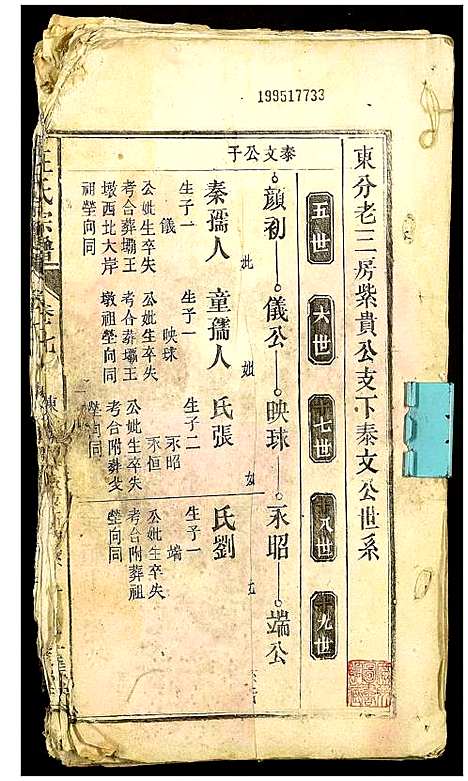 199517733
東分老三房紫貴公支下泰文公世系
五世
六世
十七世
十八世
十九世
泰文公子
顔初
儀公
映球
永昭
端公
秦孺人
妣
生子一
儀
公妣生卒失
考合葬壩王
墩西北大岸
祖塋向同
童孺人
生子一
映球
公妣生卒失
考合葬壩王
墩祖塋向同
張氏
生子二
永昭
永恒
公妣生卒失
考合附葬
塋向同
劉氏
生子一
端
公妣生卒失
考合附葬祖
塋向同
氏宗譜
卷七